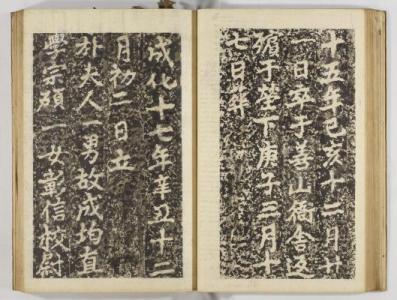 十五年己亥十二月廿
一日卒于善山僑舍返
殯于塋下庚子三月十
七日葬
成化十七年辛丑十二
月初二日立
朴夫人一男故成均直
學宗碩一女彰信校尉